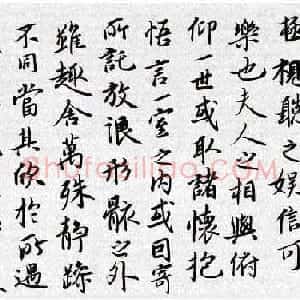 極視聽之娛信可
樂也夫人之相與俯
仰一世或取諸懷抱
悟言一室之內或因寄
所託放浪形骸之外
雖趣舍萬殊靜躁
不同當其欣於所遇